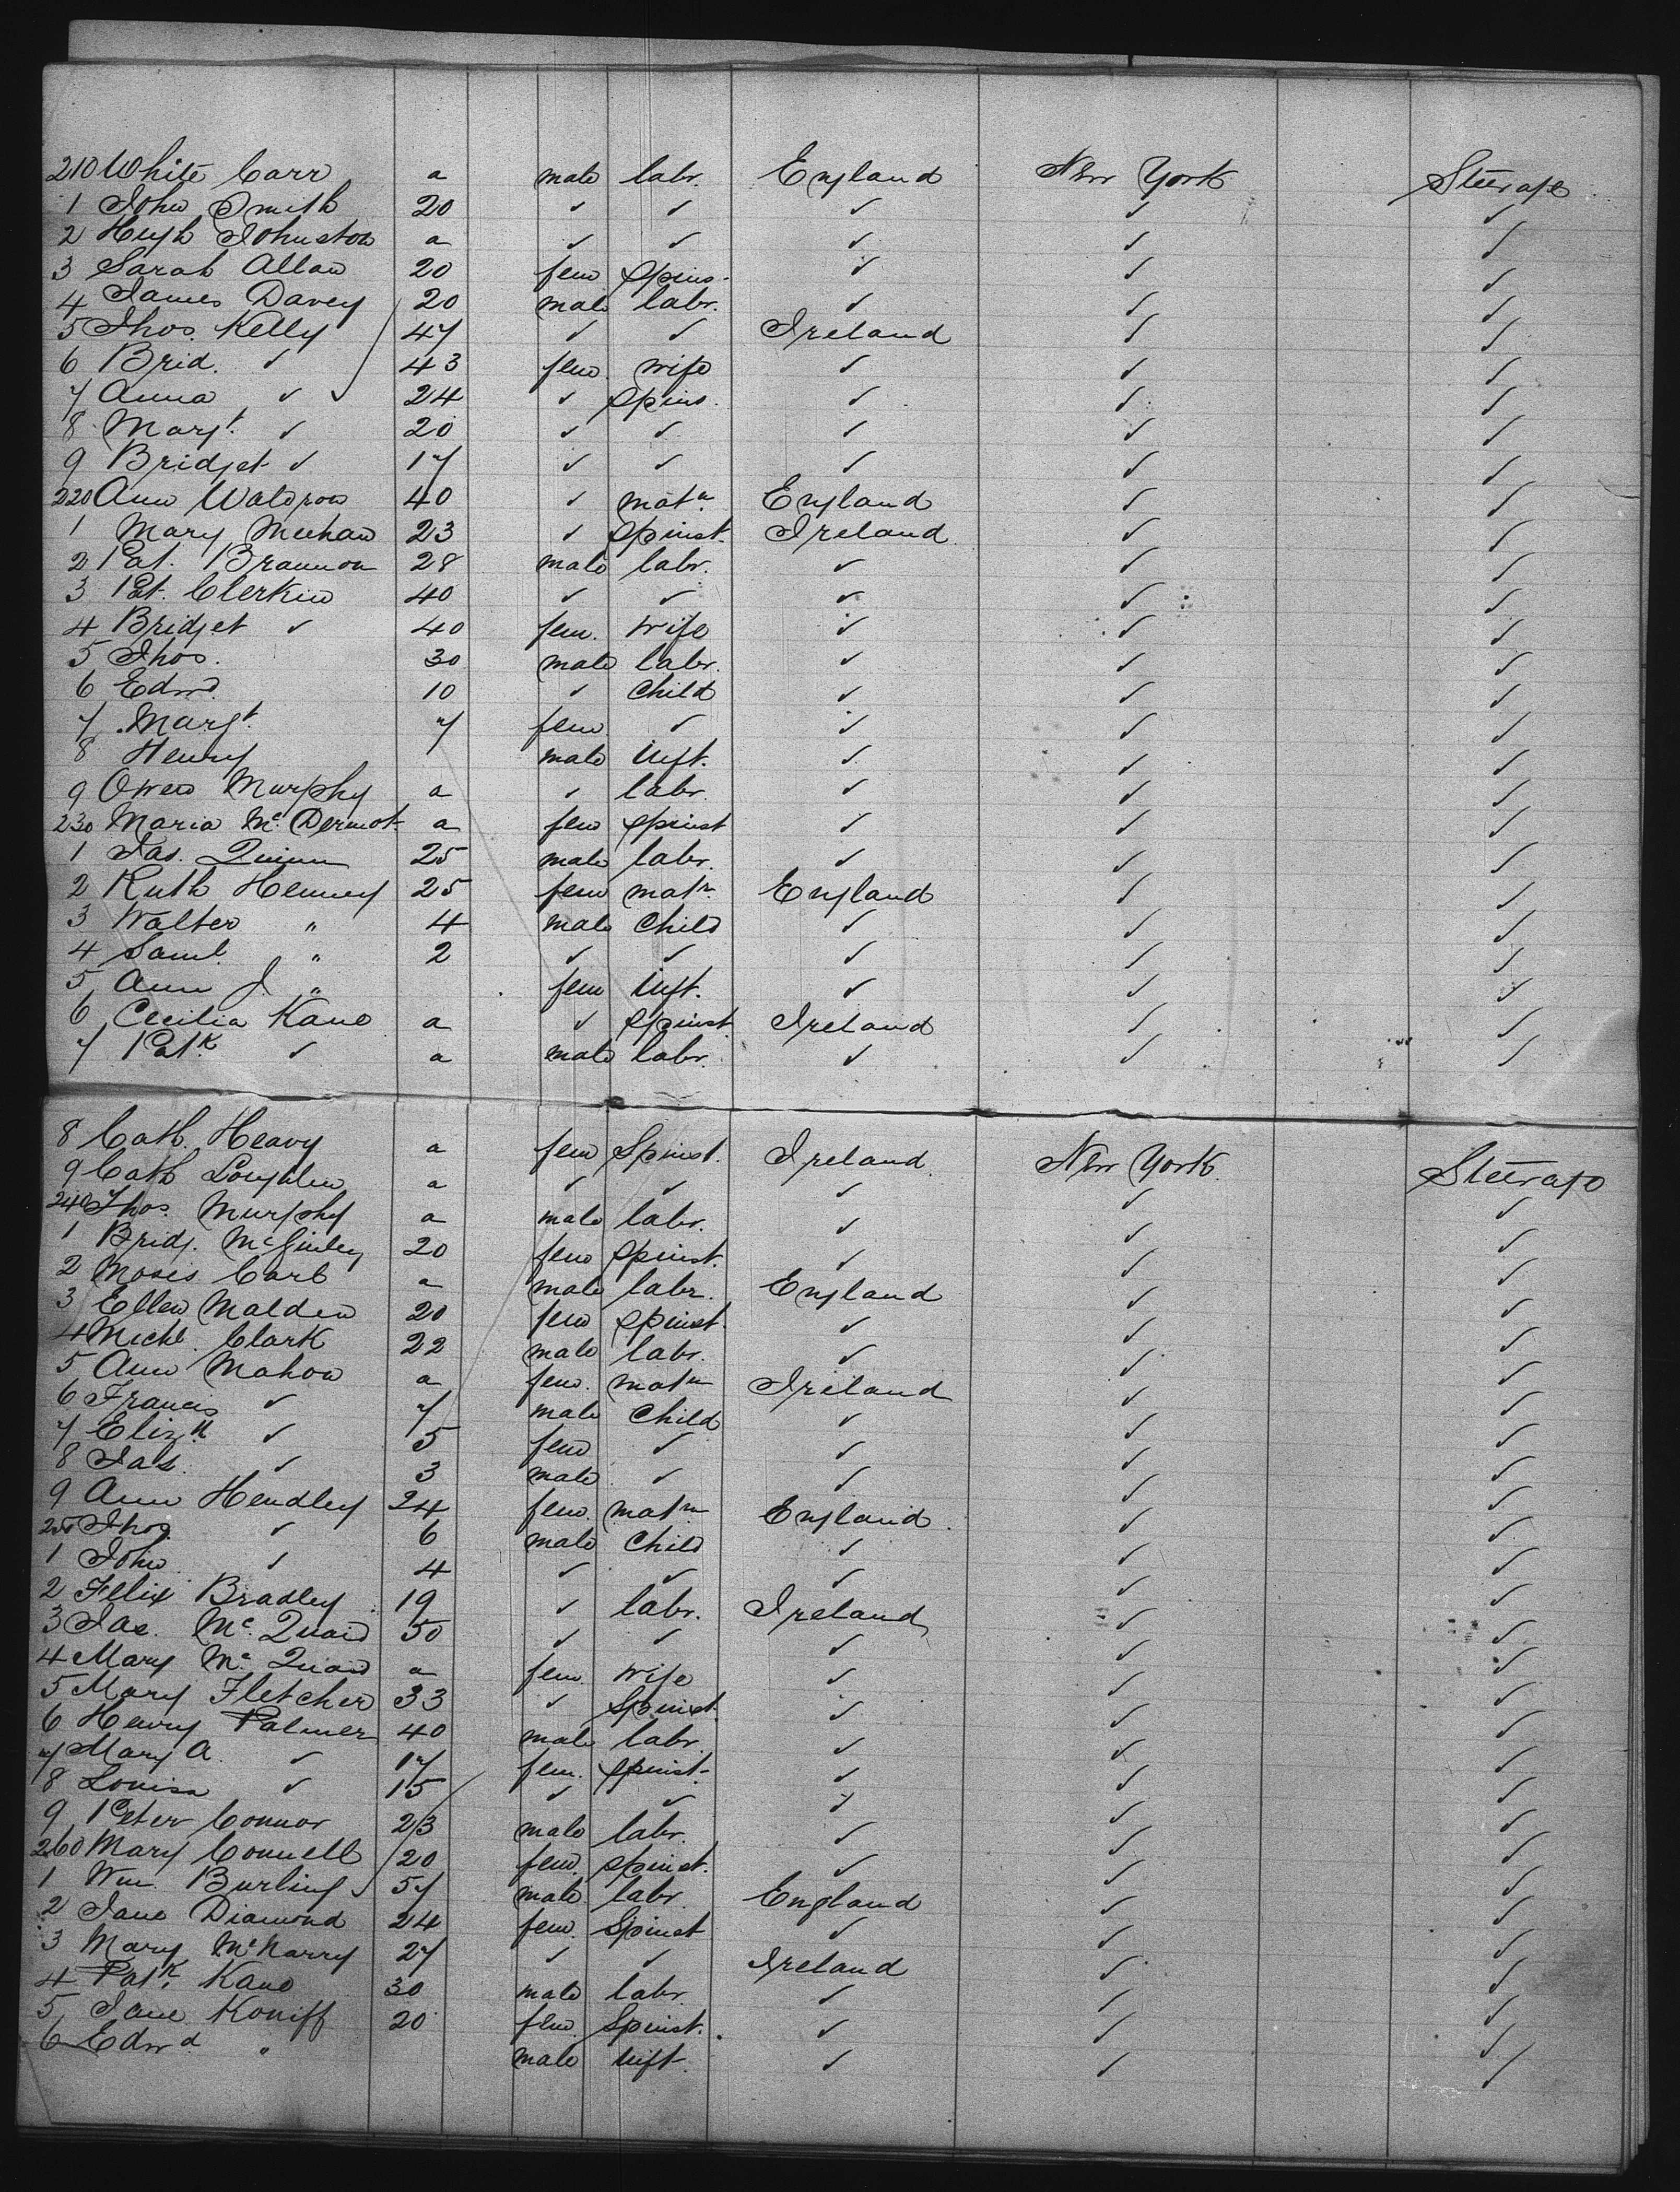 210 White Carr a male labr. England New York Steerage
1 John Smith 20 ✓ ✓ ✓ ✓ ✓
2 Hugh Johnston a ✓ ✓ ✓ ✓ ✓
3 Sarah Allan 20 fem spins. ✓ ✓ ✓
4 James Davey 20 male labr. ✓ ✓ ✓
5 Thos. Kelly 47 ✓ ✓ Ireland ✓ ✓
6 Brid. ✓ 43 fem. wife ✓ ✓ ✓
7 Anna ✓ 24 ✓ spins. ✓ ✓ ✓
8 Margt. ✓ 20 ✓ ✓ ✓ ✓ ✓
9 Bridget ✓ 17 ✓ ✓ ✓ ✓ ✓
220 Ann Waldron 40 ✓ matn. England ✓ ✓
1 Mary Meehan 23 ✓ spinst. Ireland ✓ ✓
2 Pat. Brannon 28 male labr. ✓ ✓ ✓
3 Pat. Clerkin 40 ✓ ✓ ✓ ✓ ✓
4 Bridget ✓ 40 fem. wife ✓ ✓ ✓
5 Thos. 30 male labr. ✓ ✓ ✓
6 Edwd. 10 ✓ child ✓ ✓ ✓
7 Margt. 7 fem ✓ ✓ ✓ ✓
8 Henry male inft. ✓ ✓ ✓
9 Owen Murphy a ✓ labr. ✓ ✓ ✓
230 Maria McDermot a fem spinst ✓ ✓ ✓
1 Jas. Quinn 25 male labr. ✓ ✓ ✓
2 Ruth Henney 25 fem matn. England ✓ ✓
3 Walter " 4 male child ✓ ✓ ✓
4 Saml. " 2 ✓ ✓ ✓ ✓ ✓
5 Ann J. " fem inft. ✓ ✓ ✓
6 Cecilia Kane a ✓ spinst Ireland ✓ ✓
7 Patk. ✓ a male labr. ✓ ✓ ✓
8 Cath. Heavy a fem Spinst. Ireland New York Steerage
9 Cath Loughlin a ✓ ✓ ✓ ✓ ✓
240 Thos. Murphy a male labr. ✓ ✓ ✓
1 Bridg. McGinley 20 fem spinst. ✓ ✓ ✓
2 Moses Carb a male labr. England ✓ ✓
3 Ellen Malden 20 fem spinst. ✓ ✓ ✓
4 Michl. Clark 22 male labr. ✓ ✓ ✓
5 Ann Mahon a fem. matn Ireland ✓ ✓
6 Francis ✓ 7 male child ✓ ✓ ✓
7 Elizh ✓ 5 fem ✓ ✓ ✓ ✓
8 Jas. ✓ 3 male ✓ ✓ ✓ ✓
9 Ann Hendley 24 fem. matn England ✓ ✓
250 Thos. ✓ 6 male child ✓ ✓ ✓
1 John ✓ 4 ✓ ✓ ✓ ✓ ✓
2 Felix Bradley 19 ✓ labr. Ireland ✓ ✓
3 Jas. Mc.Quaid 50 ✓ ✓ ✓ ✓ ✓
4 Mary Mc.Quaid a fem wife ✓ ✓ ✓
5 Mary Fletcher 33 ✓ Spinst. ✓ ✓ ✓
6 Henry Palmer 40 male labr. ✓ ✓ ✓
7 Mary A. ✓ 17 fem. spinst. ✓ ✓ ✓
8 Louisa ✓ 15 ✓ ✓ ✓ ✓ ✓
9 Peter Connor 23 male labr. ✓ ✓ ✓
260 Mary Connell 20 fem. spinst. ✓ ✓ ✓
1 Wm. Burling 57 male labr England ✓ ✓
2 Jane Diamond 24 fem. Spinst ✓ ✓ ✓
3 Mary McNarry 27 ✓ ✓ Ireland ✓ ✓
4 Patk. Kane 30 male labr. ✓ ✓ ✓
5 Jane Koniff 20 fem. Spinst. ✓ ✓ ✓
6 Edwd " male inft. ✓ ✓ ✓